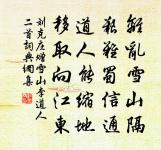 離亂雪山隔
艱難蜀信通
道人能縮地
移取向江東
劉克庄贈雪山李道人
二首詞典網喜